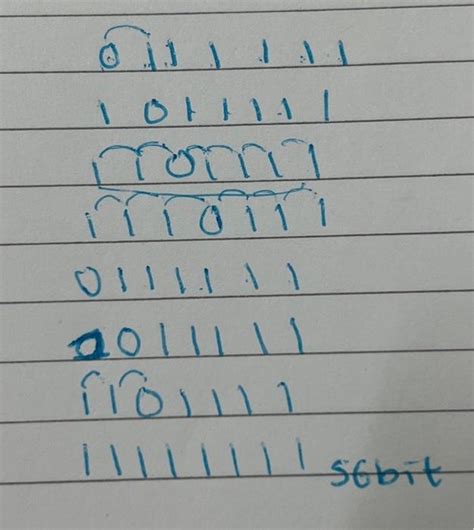 0 1 1 1 1 1 1
1 0 1 1 1 1 1
1 1 1 0 1 1 1 1
1 1 1 1 0 1 1 1
0 1 1 1 1 1 1
0 1 1 1 1 1
1 1 0 1 1 1 1
1 1 1 1 1 1 1 1 56bit